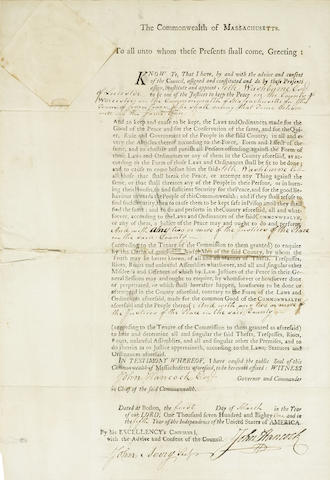 The Commonwealth of MASSACHUSETTS.
To all unto whom these Presents shall come, Greeting:
KNOW YE, That I have, by and with the advice and consent
of the Council, assigned and constituted and do by these Presents
assign, constitute and appoint Seth Washburne Esqr
of Leicester to be one of the Justices to keep the Peace in the County of
Worcester in the Commonwealth of Massachusetts for the
And to keep and cause to be kept, the Laws and Ordinances made for the
Good of the Peace and for the Conservation of the same, and for the Quiet,
Rule and Government of the People in the said County, in all and e-
very the Articles thereof according to the Force, Form and Effect of the
same; and to chastise and punish all Persons offending against the Form of
those Laws and Ordinances or any of them in the County aforesaid, as ac-
cording to the Form of those Laws and Ordinances shall be fit to be done;
and to cause to come before him the said Seth Washburne Esqr
all those that shall break the Peace, or attempt any Thing against the
same, or that shall threaten any of the People in their Persons, or in burn-
ing their Houses, to find sufficient Security for the Peace, and for the good Be-
haviour towards the People of this Commonwealth; and if they shall refuse to
find such Security, then to cause them to be kept safe in Prison until they shall
find the same; and to do and perform in the County aforesaid, all and what-
soever, according to the Laws and Ordinances of the said COMMONWEALTH,
or any of them, a Justice of the Peace may and ought to do and perform,
And with any two or more of the Justices of the Peace
in the said County
(according to the Tenure of the Commission to them granted) to enquire
by the Oaths of good and lawful Men of the said County, by whom the
Truth may be better known, of all and all Manner of Thefts, Trespasses,
Riots, Routs and unlawful Assemblies whatsoever, and all and singular other
Misdeeds and Offences of which by Law Justices of the Peace in their Gen-
eral Sessions may and ought to enquire, by whomsoever or howsoever done
or perpetrated, or which shall hereafter happen, howsoever to be done or
attempted in the County aforesaid, contrary to the Form of the Laws and
Ordinances aforesaid, made for the common Good of the COMMONWEALTH
aforesaid and the People thereof; And with any two or more of
the Justices of the Peace in the said County
(according to the Tenure of the Commission to them granted as aforesaid)
to hear and determine all and singular the said Thefts, Trespasses, Riots,
Routs, unlawful Assemblies, and all and singular other the Premises, and to
do therein as to Justice appertaineth, according to the Laws, Statutes and
Ordinances aforesaid.
IN TESTIMONY WHEREOF, I have caused the public Seal of this
Commonwealth of Massachusetts aforesaid, to be hereunto affixed: WITNESS
John Hancock Esqr Governor and Commander
in Chief of the said Commonwealth.
Dated at Boston, the first Day of March in the Year
of our LORD, One Thousand Seven Hundred and Eighty One and in
the fifth Year of the Independence of the United States of AMERICA.
By his EXCELLENCY's Command,
with the Advice and Consent of the Council.
John Hancock
John Avery